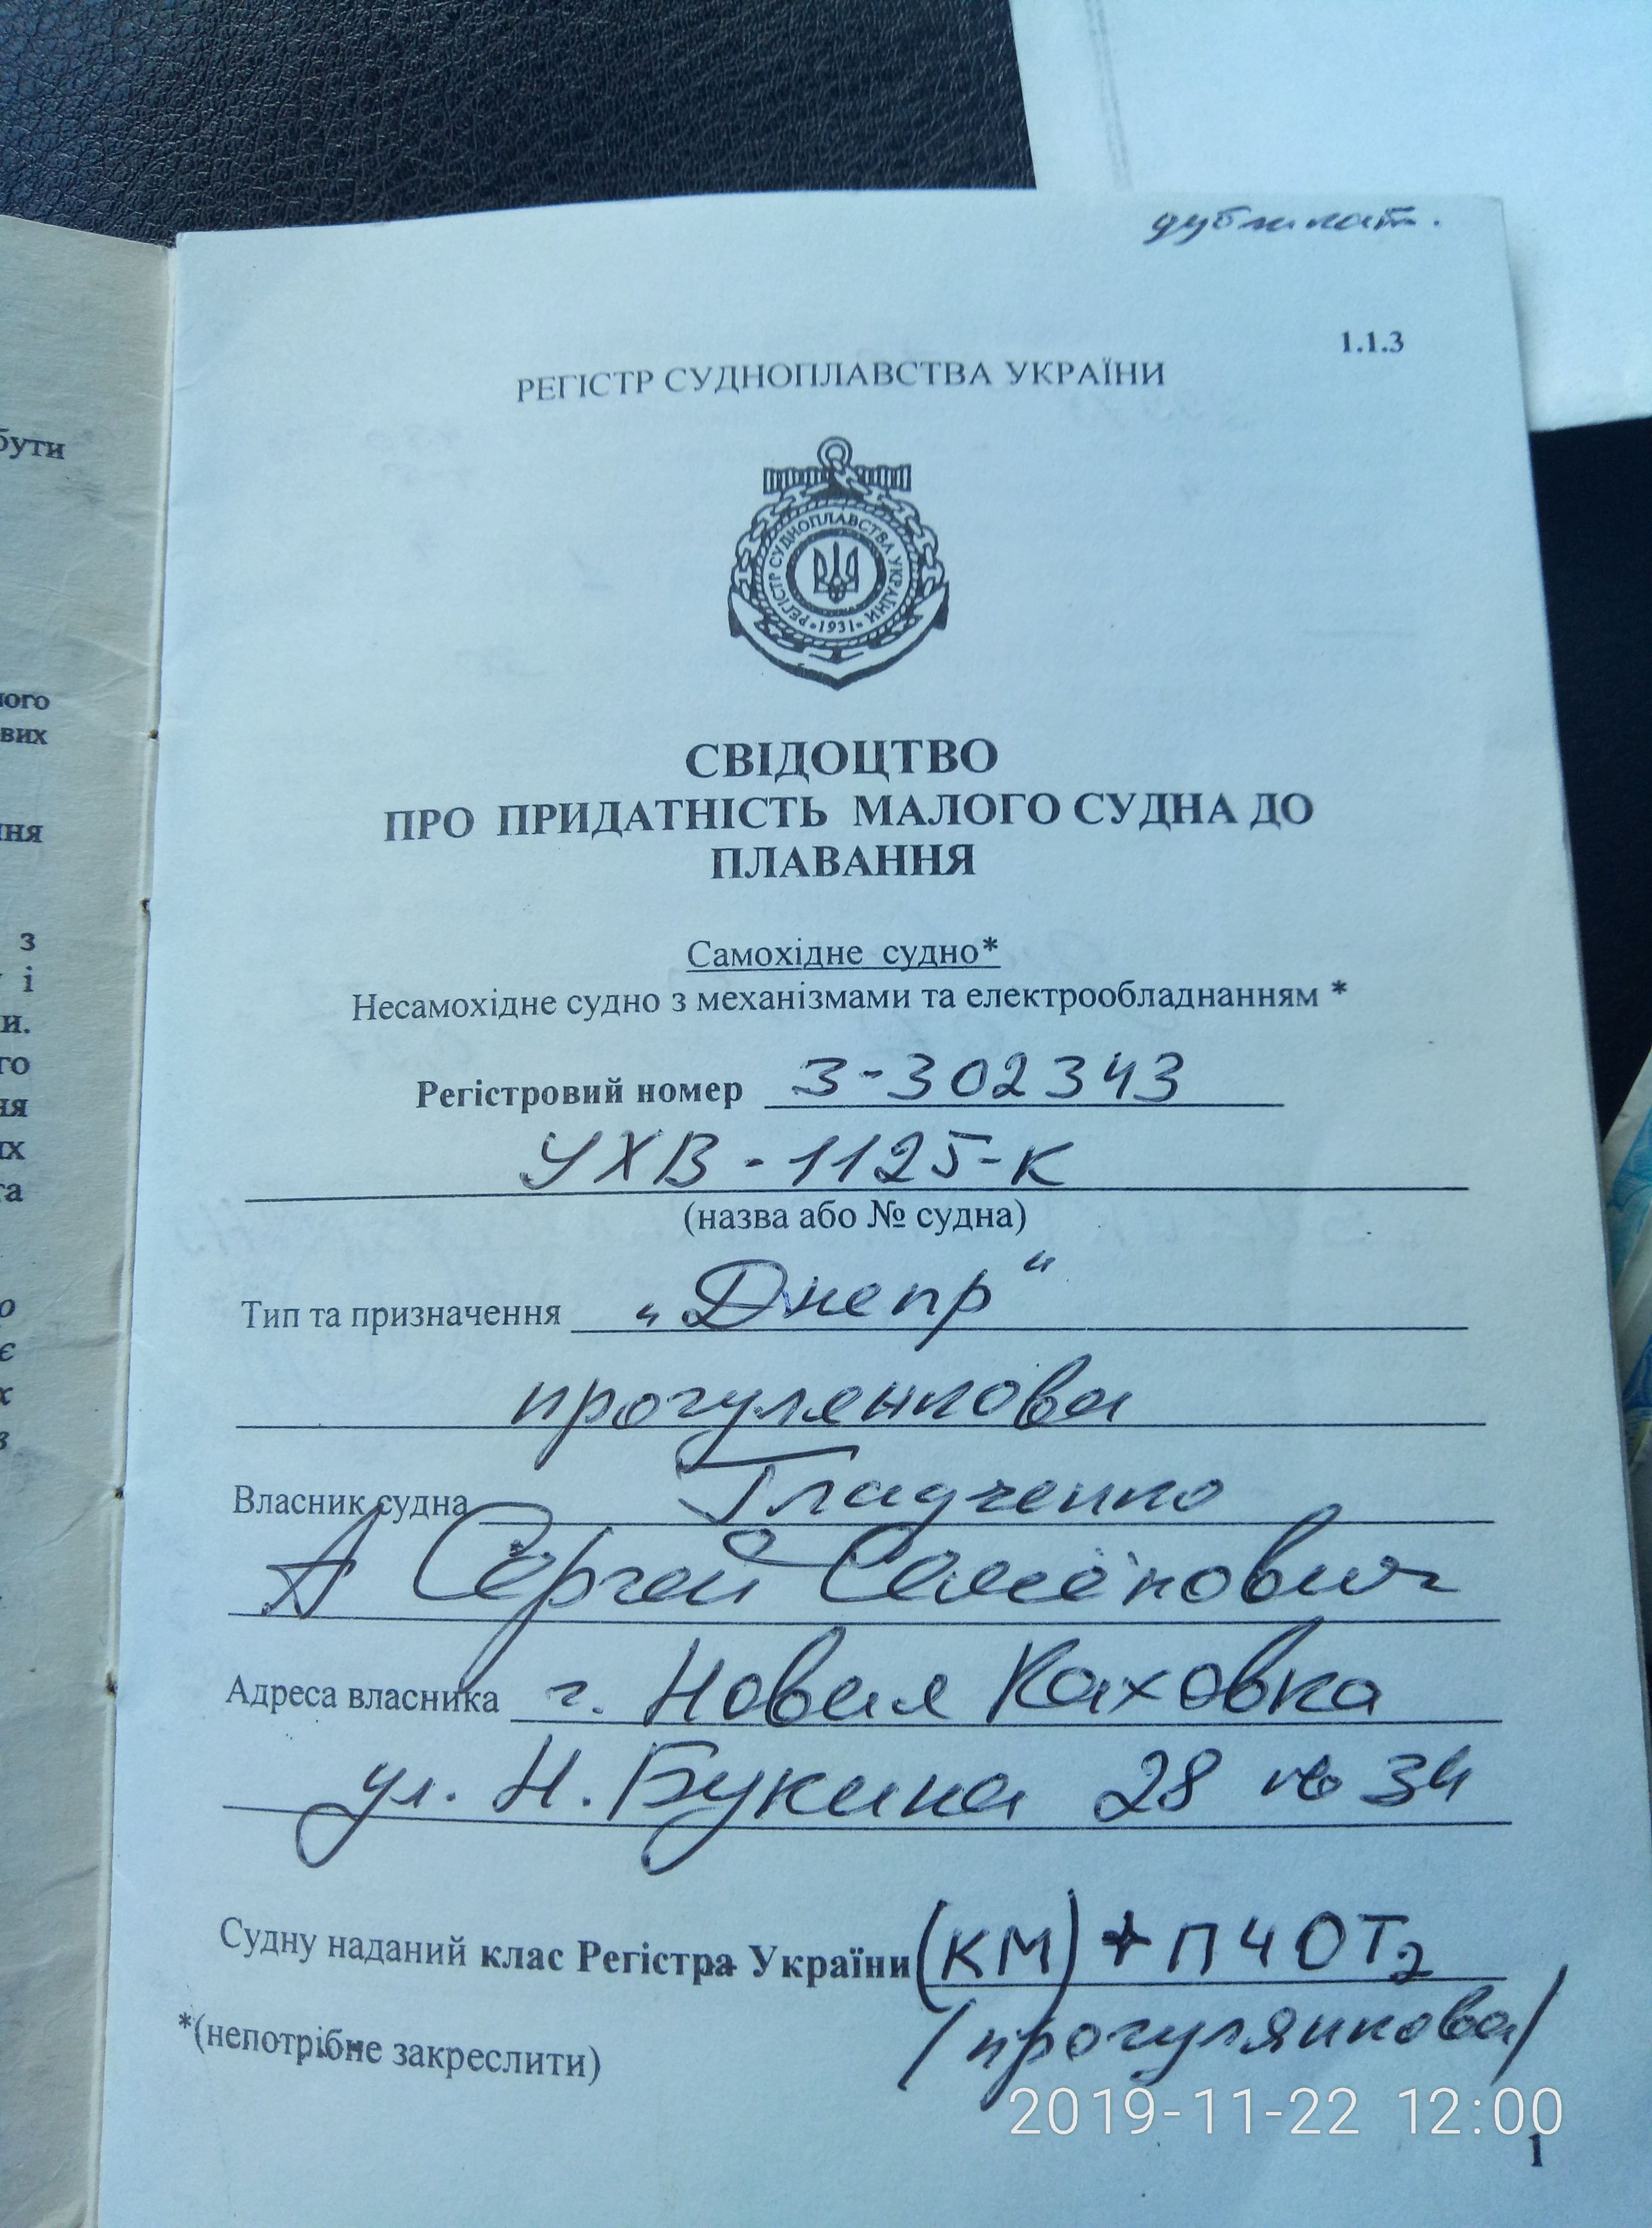 дубликат.
1.1.3
РЕГІСТР СУДНОПЛАВСТВА УКРАЇНИ
РЕГІСТР СУДНОПЛАВСТВА УКРАЇНИ
1931
СВІДОЦТВО
ПРО ПРИДАТНІСТЬ МАЛОГО СУДНА ДО
ПЛАВАННЯ
Самохідне судно*
Несамохідне судно з механізмами та електрообладнанням *
Регістровий номер 3-302343
УХВ-1125-К
(назва або № судна)
Тип та призначення „Днепр“
прогулянкова
Власник судна Гладченко
Сергей Семёнович
Адреса власника г. Новая Каховка
ул. Н. Букина 28 кв 34
Судну наданий клас Регістра України (КМ)+ПЧОТ2
/прогулянкова/
*(непотрібне закреслити)
2019-11-22 12:00
1
бути
ного
вих
ння
з
і
и.
го
ня
их
та
о
є
х
в